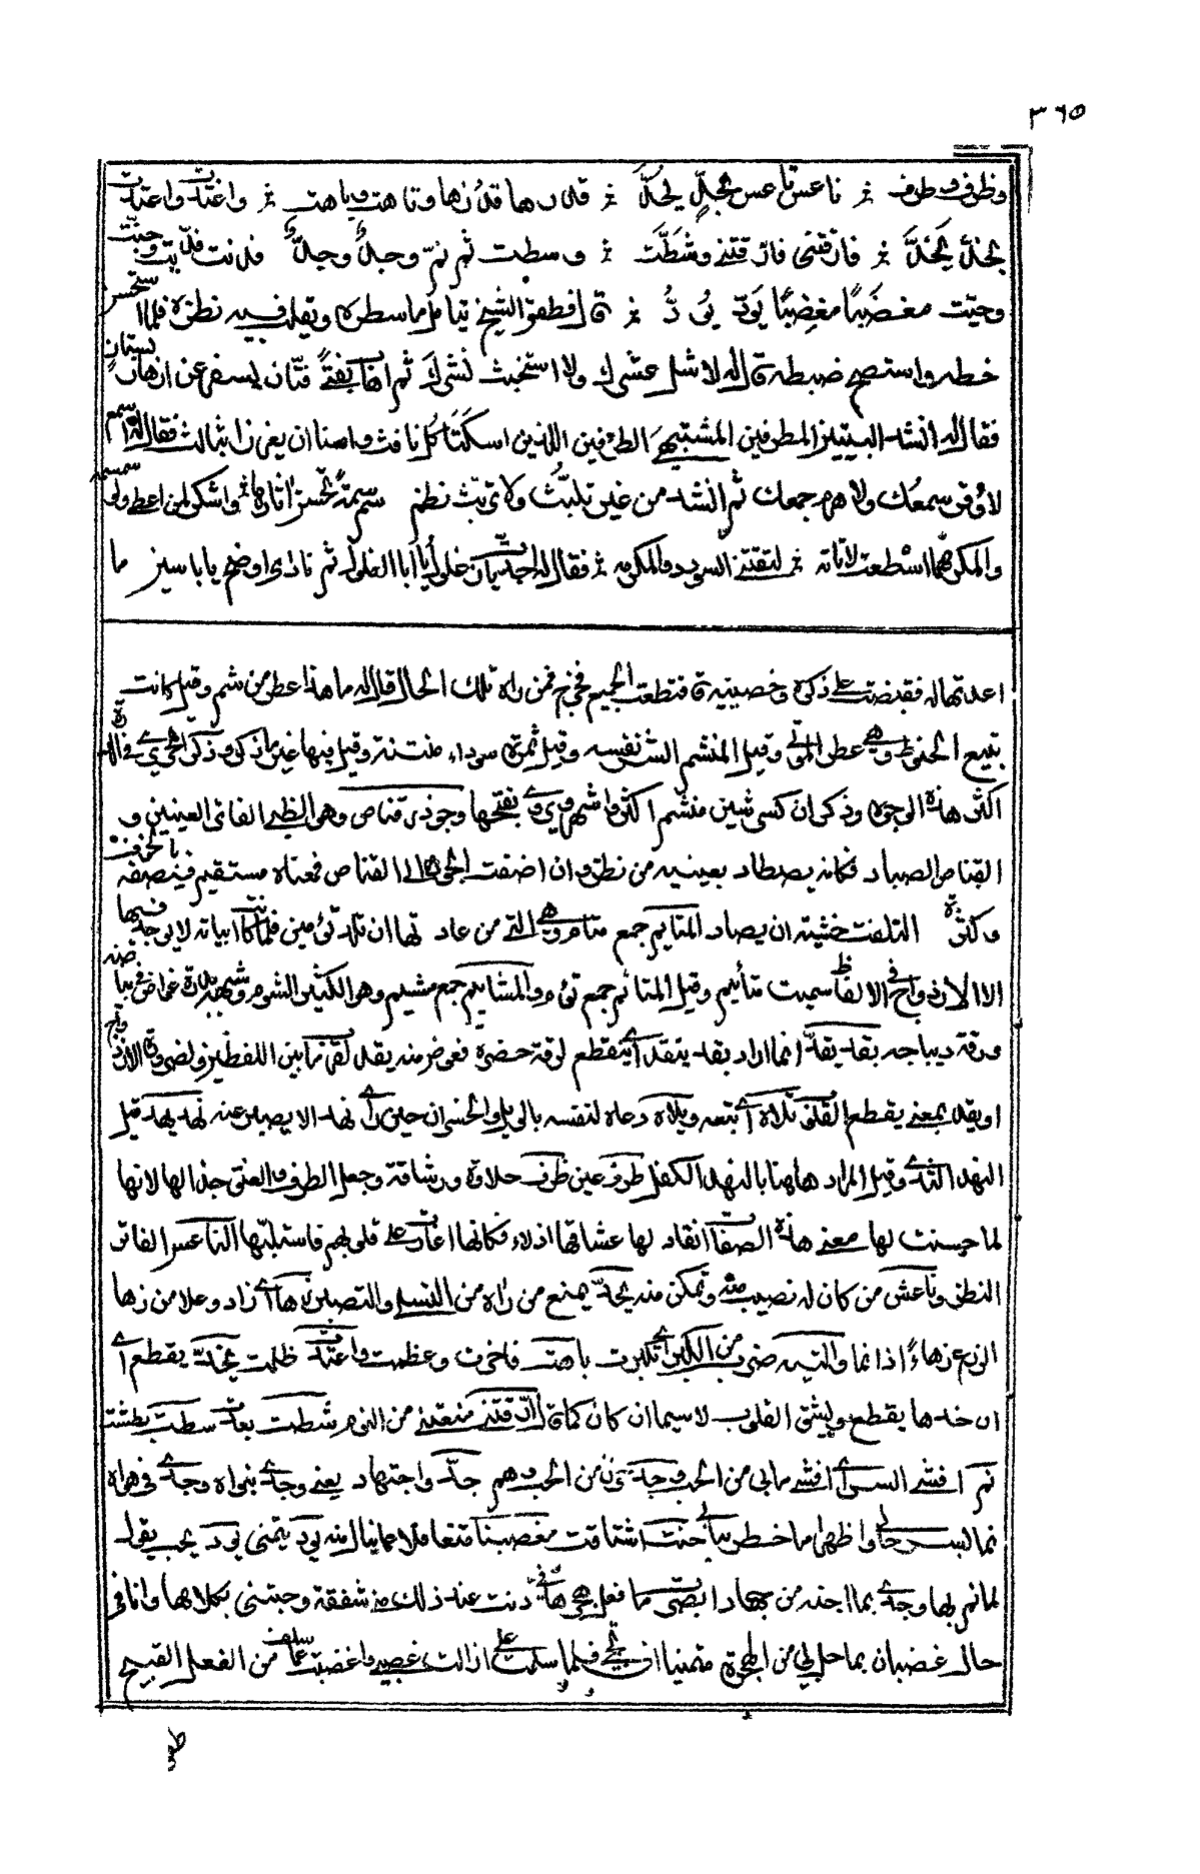 ٣٦٥
وظرف وطرف ناعس تاعس بحد يحد قدرها قد زها وتاهت وباهت واعتدت واعتدت
بخد يخد فارقتني فارقتني وشطت وسطت ثم نم وجد وجد فدنت فديت وحنت
وحيت مغضبا مغضيا يود يود قال فطفق الشيخ يتأمل ما سطره ويقلب فيه نظره فلما استحسن
خطه واستصح ضبطه قال له لا شل عشرك ولا استخبث نشرك ثم اهاب بفتى فتان يسفر عن ازهار بستان
فقال له انشد البيتين المطرفين المشتبهي الطرفين اللذين اسكتا كل نافث وامنا ان يعززا بثالث فقال له اسمع
لا وقر سمعك ولا هزم جمعك ثم انشد من غير تلبث ولا تريث نظم سم سمة تحسن اثارها واشكر لمن اعطى ولو سمسمة
والمكر مهما اسطعت لا تأته لتقتني السودد والمكرمه فقال له اجدت يا زغلول يا ابا الغلول ثم نادى اوضح يا ياسين ما
اعدتها له فقبضت على ذكره وخصيتيه فقطعت الجميع فخرج فمن راه تلك الحال قال له ما هذا عطر من شم وقيل كانت
تبيع الحنوط وهي عطر الموتى وقيل المنشم الشر نفسه وقيل ثمرة سوداء منتنة وقيل فيها غير ما ذكر وذكر الحريري في
اكثر هذه الوجوه وذكر ان كسر شين منشم اكثر واشهر ويروي بفتحها وجوذر قناص وهي الظبي الفاتر العينين و
القناص الصياد فكانه يصطاد بعينيه من نظره وان اضفت الى القناص فمعناه مستقيم فينصفه بالخوف
وكثرة التلفت خشية ان يصاد المتائيم جمع متام وهي التي من عادتها ان تلد توءمين فلما ابياته لا يوجد فيها
الا الازدواج في الالفاظ سميت متأئيم وقيل المتائم جمع توءم والمشائيم جمع مشيم وهو الكثير الشوم
ورقة ديباجه بقد يقد انما اراد بقد يتقد اي يتقطع لرقة حضره فعوض منه يقد لقرب ما بين اللفظين ولضرورة الازدواج
او يقد بمعنى يقطع القلوب تلاه اي تبعه ويلاه دعاه لنفسه بالويل والخسران حين راى نهد الا يصبر عنه نهد يهد قيل
النهد الثدي وقيل المراد هاهنا بالنهد الكفل طرف عين ظرف حلاوة ورشاقة وجعل الطرف والعنق جندا لها لانها
لما حسنت لها معنى هذه الصفات انقاد لها عشاقها اذلاء فكانها اغارت على قلوبهم فاستلبتها الناعس الفاتر
النظر وتاعش من كان له نصيب منه وتمكن منه يحد يمنع من راه من التسلي والتصبر زهاها اي زاد وعلا من زها
الزرع زهاء اذا نما والتيه ضرب من الكبر اي تكبرت باهت فاخرت وعظمت واعتدت ظلمت بخد يخد يقطع اي
ان خدها يقطع ويشق القلوب لا سيما ان كان كما قال ارقتني منعتني من النوم شطت بعدت سطت بطشت
نم افشى السر اي افشى ما بي من الحب وجد حزن من الحب وهم جد واجتهاد يعني وجدي بنواه وجدي في هواه
نما السر حالي واظهر ما خطر ببالي حنت اشتاقت مغضبا متغافلا عما ينال منه يود يتمنى يود يحب يقول
لما نم بها وجدي بما اجنه من جهاد ابصرتني ما فعل هجرها في دنت عند ذلك مني شفقة وحيتني بكلامها وانا في
حال غضبان بما حل لي من الهجرة متمنيا ان تحيي فلما سلمت علي ازالت غضبي واغضيت عما سلف من الفعل القبيح